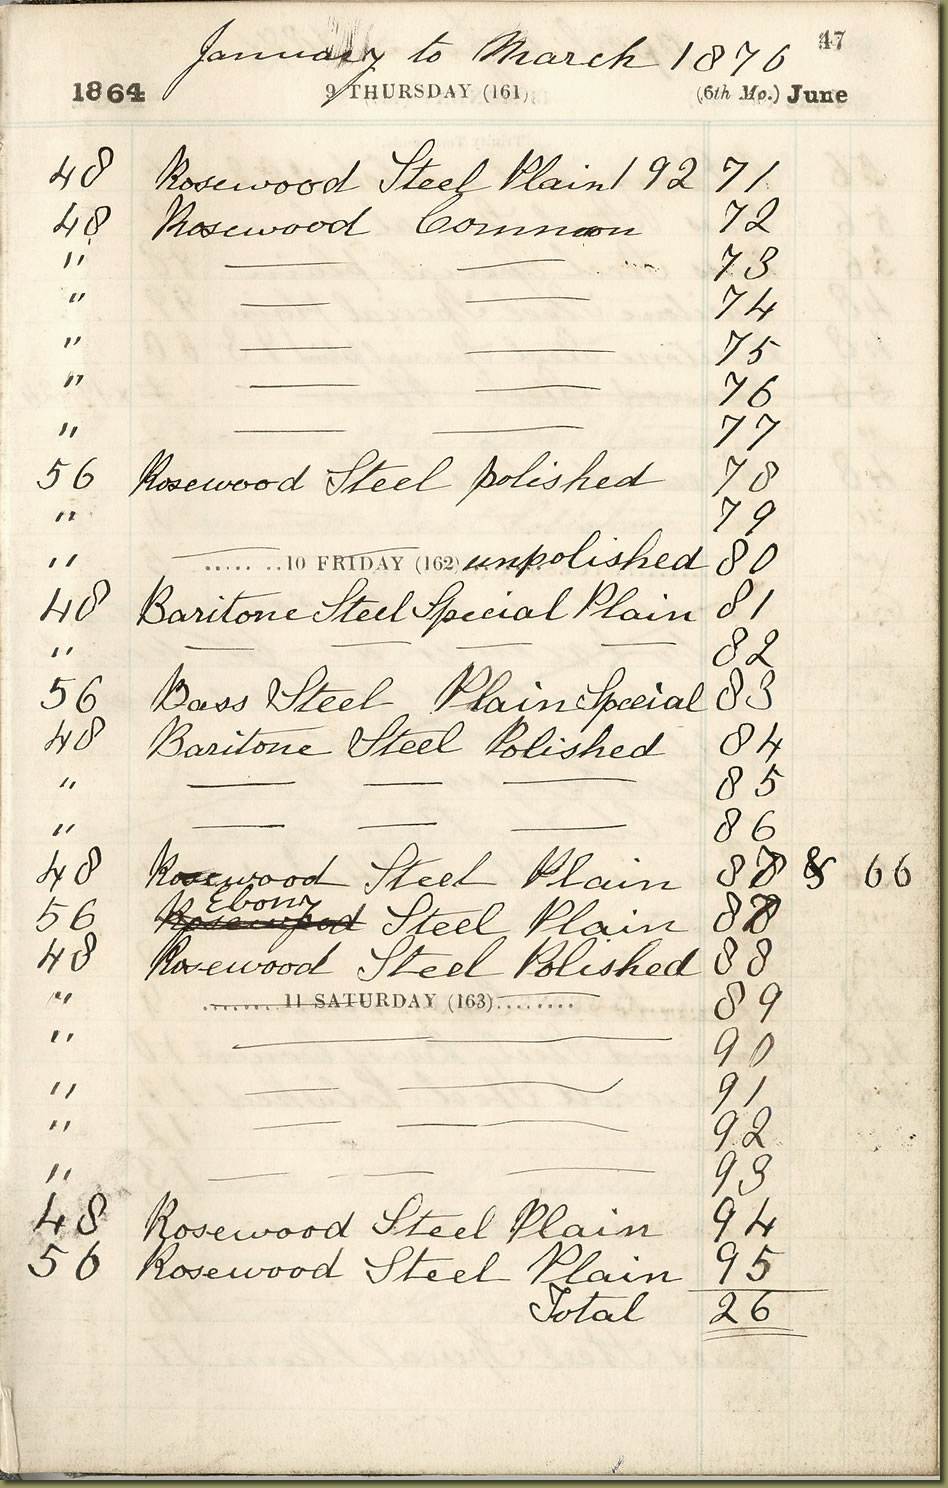 47
January to March 1876
1864 9 THURSDAY (161) (6th Mo.) June
48 Rosewood Steel Plain 192 71
48 Rosewood Common 72
" — — 73
" — — 74
" — — 75
" — — 76
" — — 77
56 Rosewood Steel polished 78
" 79
" ..... ..10 FRIDAY (162) unpolished 80
48 Baritone Steel Special Plain 81
" — — — — 82
56 Bass Steel Plain Special 83
48 Baritone Steel Polished 84
" — — — 85
" — — — 86
48 Rosewood Steel Plain 87 & 66
Ebony
56 Rosewood Steel Plain 87
48 Rosewood Steel Polished 88
" .......11 SATURDAY (163)......... 89
" — — 90
" — — 91
" — — — 92
" — — — 93
48 Rosewood Steel Plain 94
56 Rosewood Steel Plain 95
Total 26